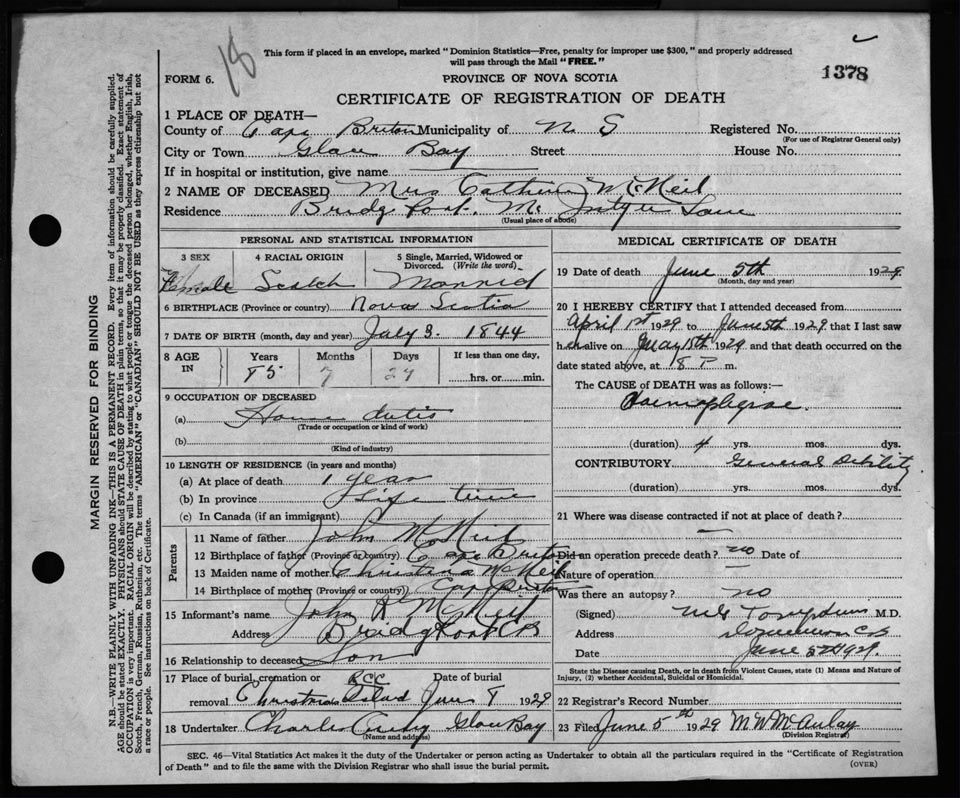 18
This form if placed in an envelope, marked "Dominion Statistics—Free, penalty for improper use $300," and properly addressed
will pass through the Mail "FREE."
1378
FORM 6.
PROVINCE OF NOVA SCOTIA
CERTIFICATE OF REGISTRATION OF DEATH
1 PLACE OF DEATH—
County of Cape Briton Municipality of N S Registered No.
(For use of Registrar General only)
City or Town Glace Bay Street House No.
If in hospital or institution, give name
2 NAME OF DECEASED Mrs Catherine McNeil
Residence Bridg Port. Mc Intyre Lane
(Usual place of abode)
PERSONAL AND STATISTICAL INFORMATION
3 SEX 4 RACIAL ORIGIN 5 Single, Married, Widowed or
Divorced. (Write the word).
Female Scotch Married
6 BIRTHPLACE (Province or country) Nova Scotia
7 DATE OF BIRTH (month, day and year) July 3. 1844
8 AGE IN Years Months Days If less than one day,
hrs. or min.
9 OCCUPATION OF DECEASED
(a) House duties
(Trade or occupation or kind of work)
(b)
(Kind of industry)
10 LENGTH OF RESIDENCE (in years and months)
(a) At place of death 1 year
(b) In province Life time
(c) In Canada (if an immigrant)
Parents
11 Name of father John McNeil
12 Birthplace of father (Province or country) Cape Briton
13 Maiden name of mother Christina McNeil
14 Birthplace of mother (Province or country)
15 Informant's name John A McNeil
Address Bridgport CB
16 Relationship to deceased Son
17 Place of burial, cremation or RCC Date of burial
removal Christmas Island June 1929
18 Undertaker Charles Glace Bay
(Name and address)
MEDICAL CERTIFICATE OF DEATH
19 Date of death June 5th 1929
(Month, day and year)
20 I HEREBY CERTIFY that I attended deceased from
April 1st 1929 to June 5th 1929 that I last saw
her alive on May 15th 1929 and that death occurred on the
date stated above, at P m.
The CAUSE of DEATH was as follows:—
(duration) 4 yrs. mos. dys.
CONTRIBUTORY General Debility
(duration) yrs. mos. dys.
21 Where was disease contracted if not at place of death?
Did an operation precede death? no Date of
Nature of operation
Was there an autopsy? no
(Signed) M.D.
Address Dominion C B
Date June 5th 1929
State the Disease causing Death, or in death from Violent Causes, state (1) Means and Nature of
Injury, (2) whether Accidental, Suicidal or Homicidal.
22 Registrar's Record Number
23 Filed June 5th 1929 M W McAulay
(Division Registrar)
SEC. 46—Vital Statistics Act makes it the duty of the Undertaker or person acting as Undertaker to obtain all the particulars required in the "Certificate of Registration
of Death" and to file the same with the Division Registrar who shall issue the burial permit.
(OVER)
MARGIN RESERVED FOR BINDING
N.B.—WRITE PLAINLY WITH UNFADING INK—THIS IS A PERMANENT RECORD. Every item of information should be carefully supplied.
AGE should be stated EXACTLY. PHYSICIANS should STATE CAUSE OF DEATH in plain terms, so that it may be properly classified. Exact statement of
OCCUPATION is very important. RACIAL ORIGIN will be described by stating to what people or tongue the deceased person belonged, whether English, Irish,
Scotch, French, German, Russian, Ruthenian, etc. The terms "AMERICAN" or "CANADIAN" SHOULD NOT BE USED as they express citizenship but not
a race or people. See instructions on back of Certificate.